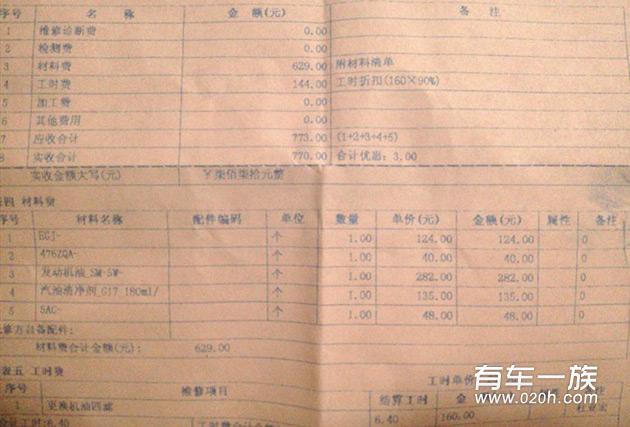 序号 名 称 金 额(元) 备 注
1 维修诊断费 0.00
2 检测费 0.00
3 材料费 629.00 附材料清单
4 工时费 144.00 工时折扣(160×90%)
5 加工费 0.00
6 其他费用 0.00
7 应收合计 773.00 (1+2+3+4+5)
8 实收合计 770.00 合计优惠: 3.00
实收金额大写(元) ￥柒佰柒拾元整
表四 材料费
序号 材料名称 配件编码 单位 数量 单价(元) 金额(元) 属性 备注
1 EGJ- 个 1.00 124.00 124.00 0
2 476ZQA- 个 1.00 40.00 40.00 0
3 发动机油 SM-5W- 个 1.00 282.00 282.00 0
4 汽油清净剂 G17 180ml/ 个 1.00 135.00 135.00 0
5 5AC- 个 1.00 48.00 48.00 0
修方自备配件:
材料费合计金额(元): 629.00
表五 工时费
序号 维修项目 结算工时 工时单价 金 备注
1 更换机油四滤 6.40 160.00
合计工时:6.40 工时费合计金额
有车一族
www.020h.com